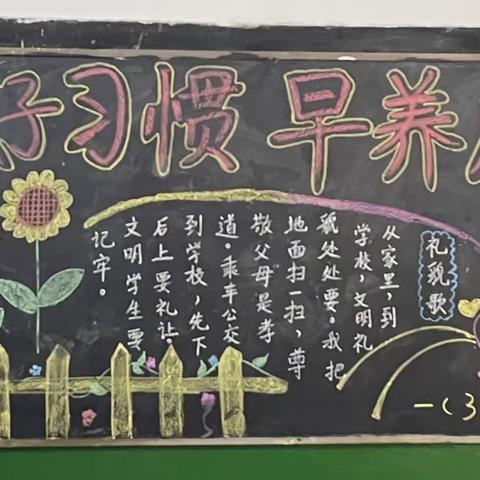 好习惯 早养
礼貌歌
从家里,到
学校,文明礼
貌处处要。我把
地面扫一扫,尊
敬父母是孝
道。乘车公交
到学校,先下
后上要礼让。
文明学生要
记牢。
一(3